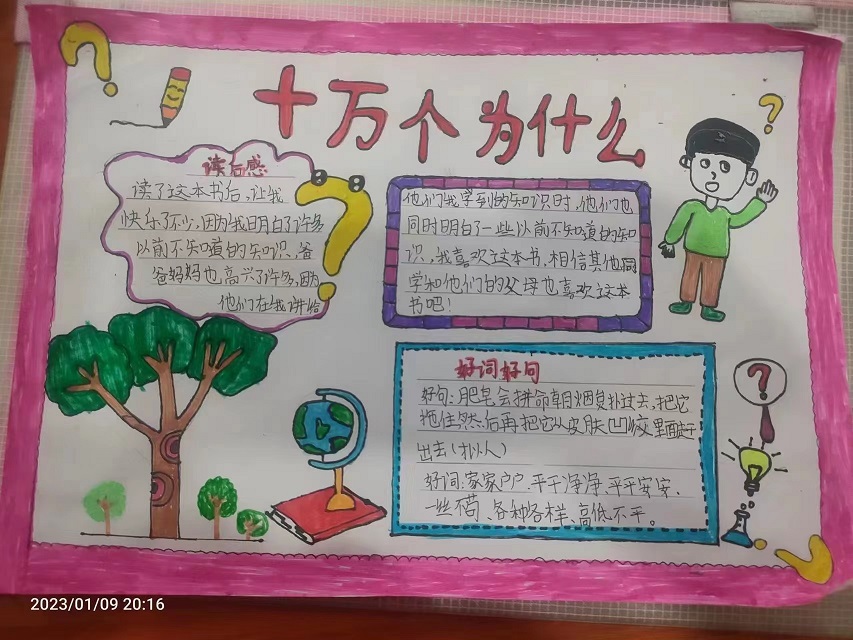 十万个为什么
读后感
读了这本书后,让我
快乐了不少,因为我明白了许多
以前不知道的知识,爸
爸妈妈也高兴了许多,因为
他们在我讲给
他们我学到的知识时,他们也
同时明白了一些以前不知道的知
识,我喜欢这本书,相信其他同
学和他们的父母也喜欢这本
书吧!
好词好句
好句:肥皂会拼命朝烟臭扑过去,把它
拖住然后再把它从皮肤凹纹里面赶
出去(拟人)
好词:家家户户、干干净净、平平安安、
一丝不苟、各种各样、高低不平。
2023/01/09 20:16